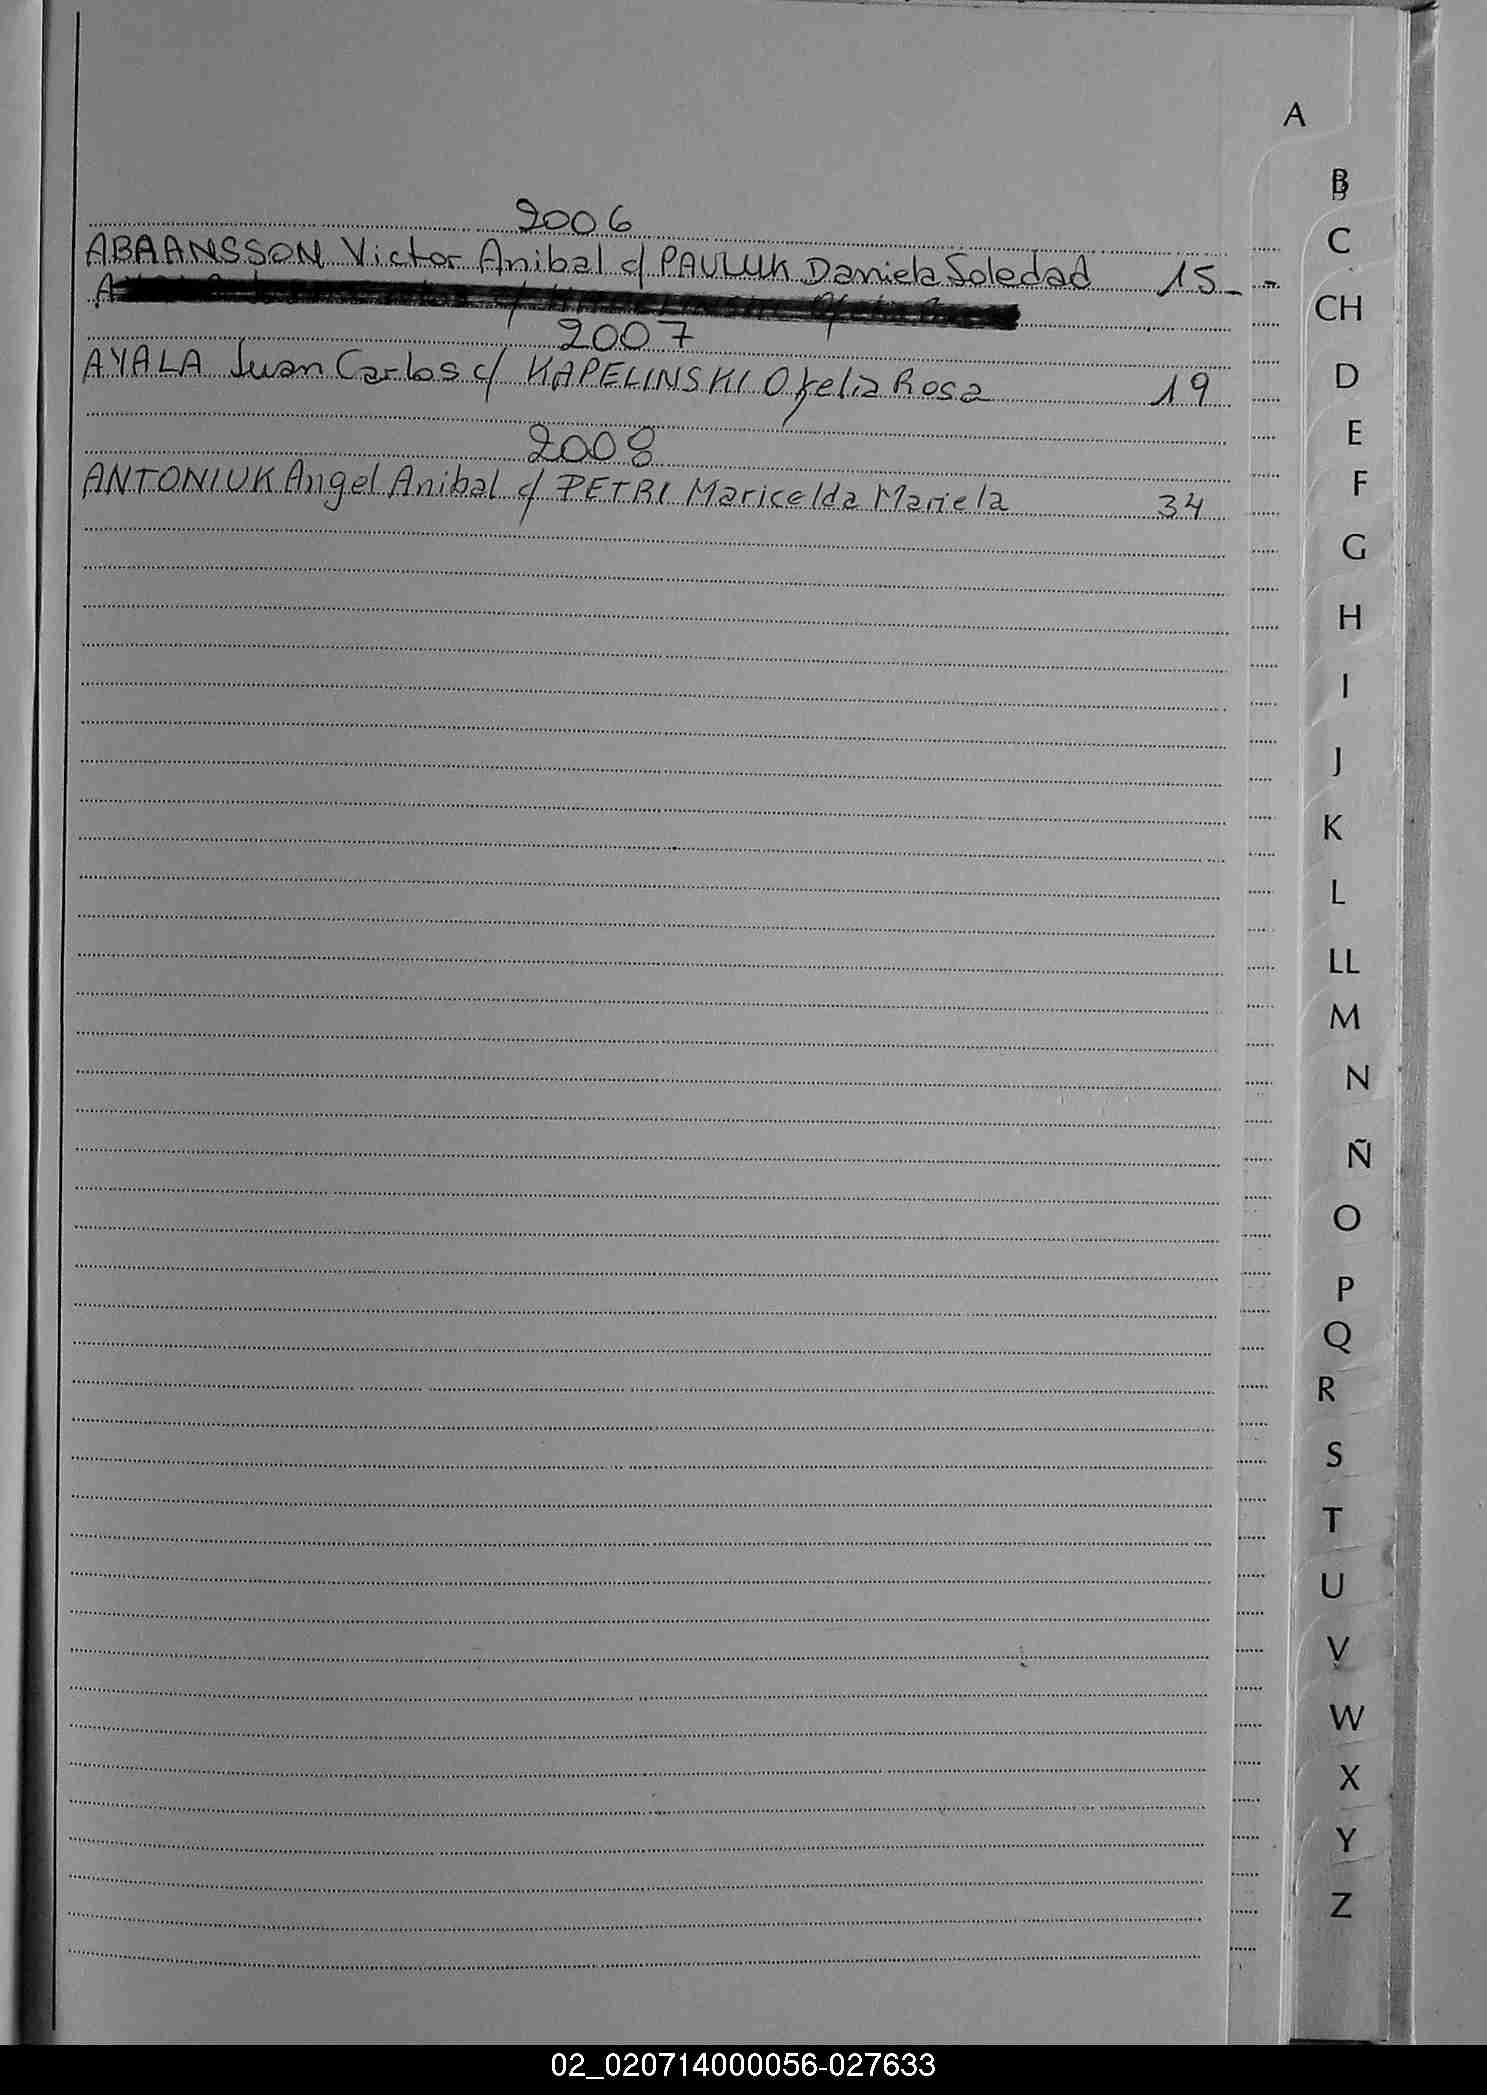 A
B
2006
C
ABRANSSON Victor Anibal c/ PAULUK Daniela Soledad 15_ -
A
CH
2007
AYALA Juan Carlos c/ KAPELINSKI Ofelia Rosa 19
D
2008
E
ANTONIUK Angel Anibal c/ PETRI Maricelda Mariela 34
F
G
H
I
J
K
L
LL
M
N
Ñ
O
P
Q
R
S
T
U
V
W
X
Y
Z
02_020714000056-027633